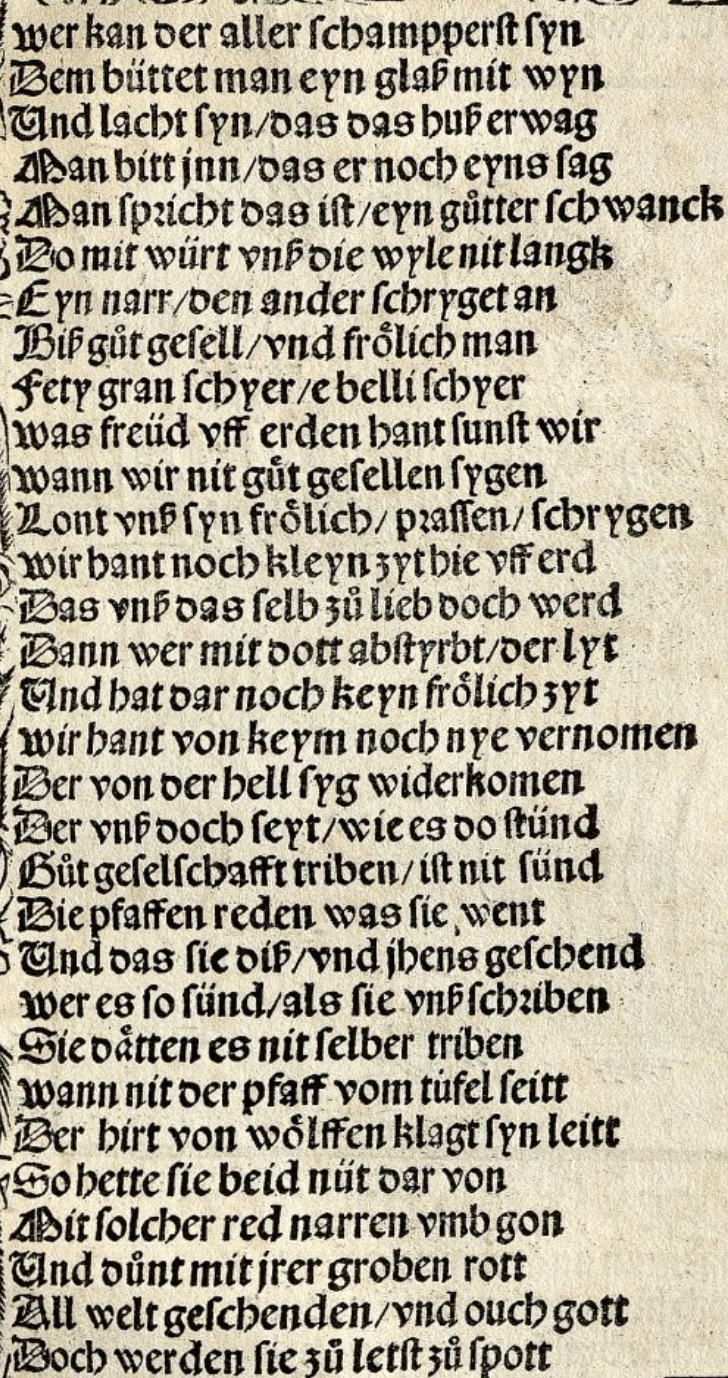 wer kan der aller schampperst syn
Dem büttet man eyn glaß mit wyn
Und lacht syn/das das huß erwag
Man bitt jnn/das er noch eyns sag
Man spricht das ist/eyn gůtter schwanck
Do mit würt vnß die wyle nit langk
Eyn narr/den ander schryget an
Biß gůt gesell/vnd frölich man
Fety gran schyer/e belli schyer
was freüd vff erden hant sunst wir
wann wir nit gůt gesellen sygen
Lont vnß syn frölich/ prassen/ schrygen
wir hant noch kleyn zyt hie vff erd
Das vnß das selb zů lieb doch werd
Dann wer mit dott abstyrbt/der lyt
Und hat dar noch keyn frölich zyt
wir hant von keym noch nye vernomen
Der von der hell syg widerkomen
Der vnß doch seyt/wie es do stünd
Gůt geselschafft triben/ist nit sünd
Die pfaffen reden was sie went
Und das sie diß/vnd jhens geschend
wer es so sünd/als sie vnß schriben
Sie dätten es nit selber triben
wann nit der pfaff vom tüfel seitt
Der hirt von wölffen klagt syn leitt
So hette sie beid nüt dar von
Mit solcher red narren vmb gon
Und důnt mit jrer groben rott
All welt geschenden/vnd ouch gott
Doch werden sie zů letst zů spott